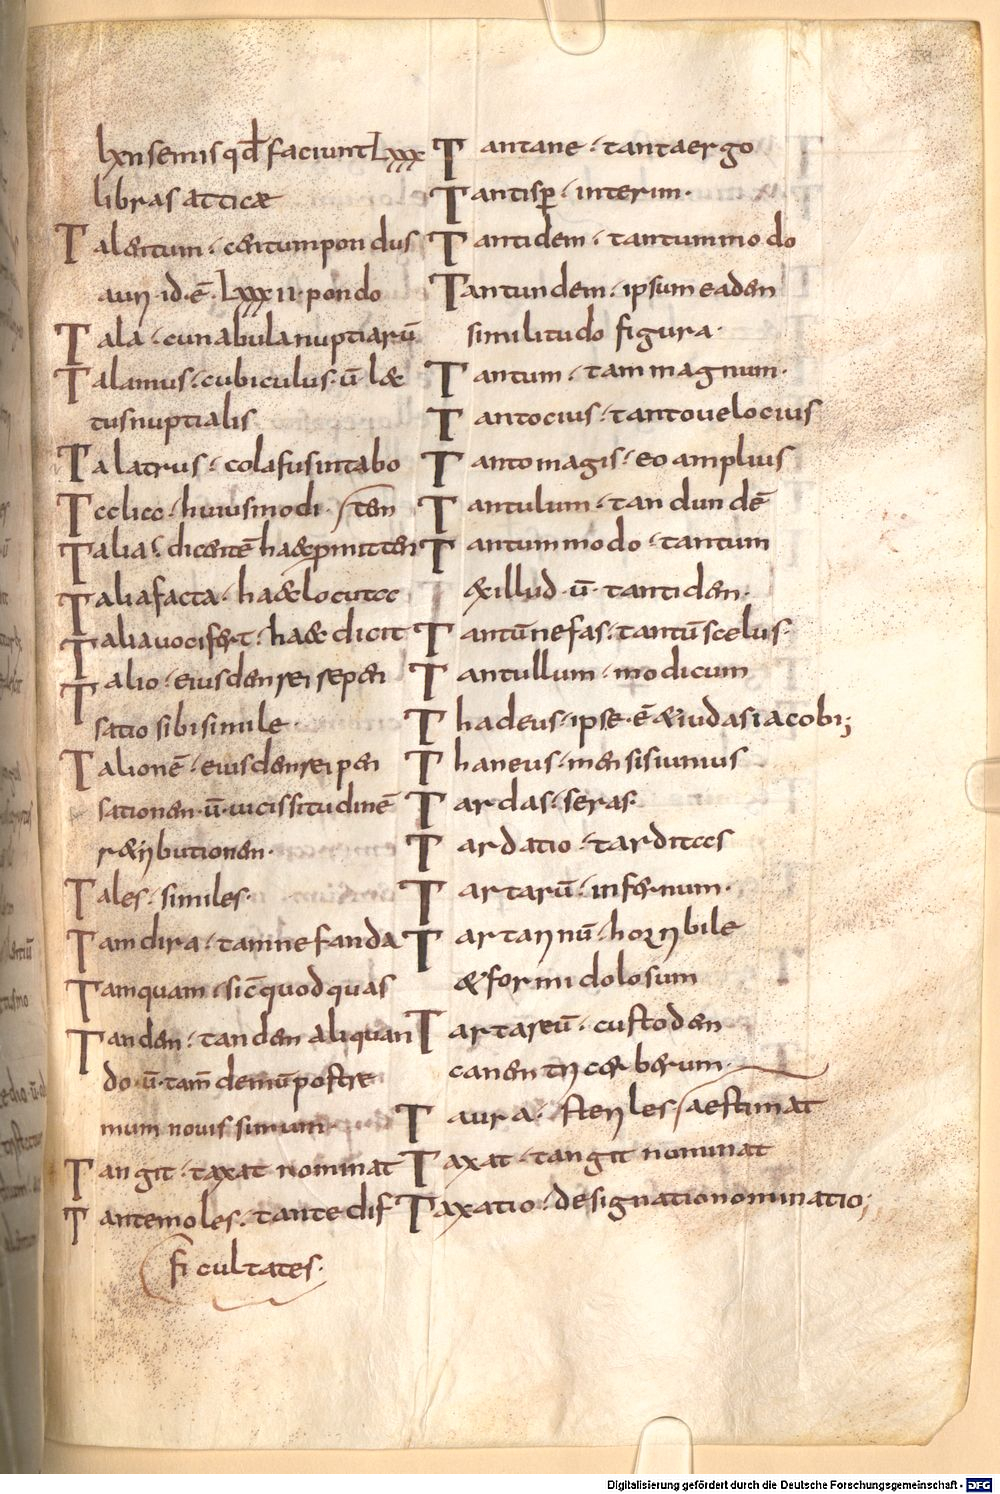 lxnsemis qđ faciunt Lxxx
libras atticæ
Talentum · centum pondus
auri · id · ē · Lxxxii · pondo
Tala · cunabula nuptiarū
Talamus · cubiculus · ū læ
tus nuptialis
Talatrus · colafus intabo
Talia · huiusmodi ·
Talia · dicentē hæc
Talia facta · hæc locuta
Talia vocifert · hæc dicit
Talio · eiusdem rei
satio sibi simile ·
Talionē · eiusdem rei pen
sationem · ū · uicissitudinē
retributionem ·
Tales · similes ·
Tam dira · tam nefanda
Tamquam · quod quas
Tandem · tandem aliquan
do · ū · tam̄ demū postre
mum novissimum ·
Tangit · taxat nominat
Tante moles · tante dif
ficultates ·
Tantane · tanta ergo
Tantisꝑ · interim ·
Tantidem · tantum modo
Tantundem · ipsum eadem
similitudo figura ·
Tantum · tam magnum ·
Tantocius · tanto uelocius
Tanto magis · eo amplius
Tantulum · tandundē
Tantummodo · tantum
& illud · ū · tantidem ·
Tantū nefas · tantū scelus ·
Tantullum · modicum
Thadeus · ipse · ē & iudas iacobi;
Thaneus · mensis iunius
Tardas · seras ·
Tardatio · tarditas
Tartarū · infernum ·
Tartarinū · horribile
& formidolosum
Tartareū · custodem
canem tricerberum ·
Taura · steriles
aestimat
Taxat · tangit nominat
Taxatio · designatio nominatio;
Digitalisierung gefördert durch die Deutsche Forschungsgemeinschaft - DFG